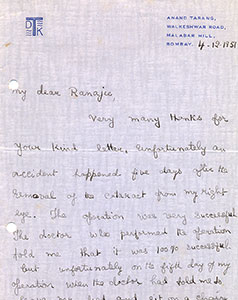 DTK
ANAND TARANG,
WALKESHWAR ROAD,
MALABAR HILL,
BOMBAY. 4.12.1951
My dear Ranajit,
Very many thanks for
your kind letter. Unfortunately an
accident happened five days after the
removal of the cataract from my right
eye. The operation was very successful.
The doctor who performed the operation
told me that it was 100% successful.
But unfortunately on the fifth day of my
operation when the doctor had told me to